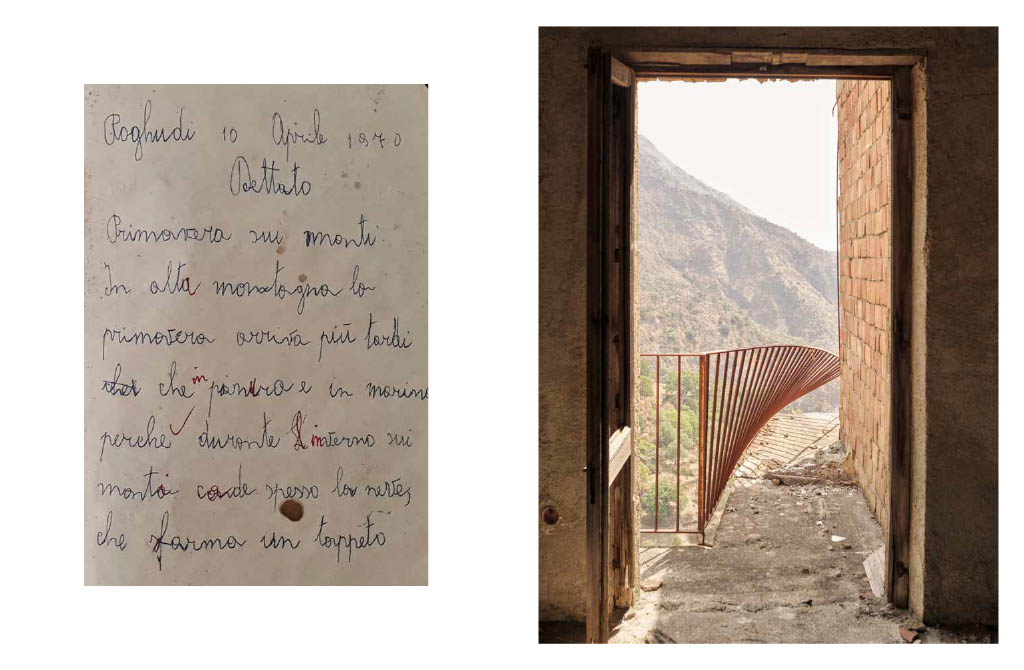 Roghudi 10 Aprile 1970
Dettato
Primavera sui monti.
In alta montagna la
primavera arriva più tardi
che che in pianura e in marina
perché durante l'inverno sui
monti cade spesso la neve,
che forma un tappeto